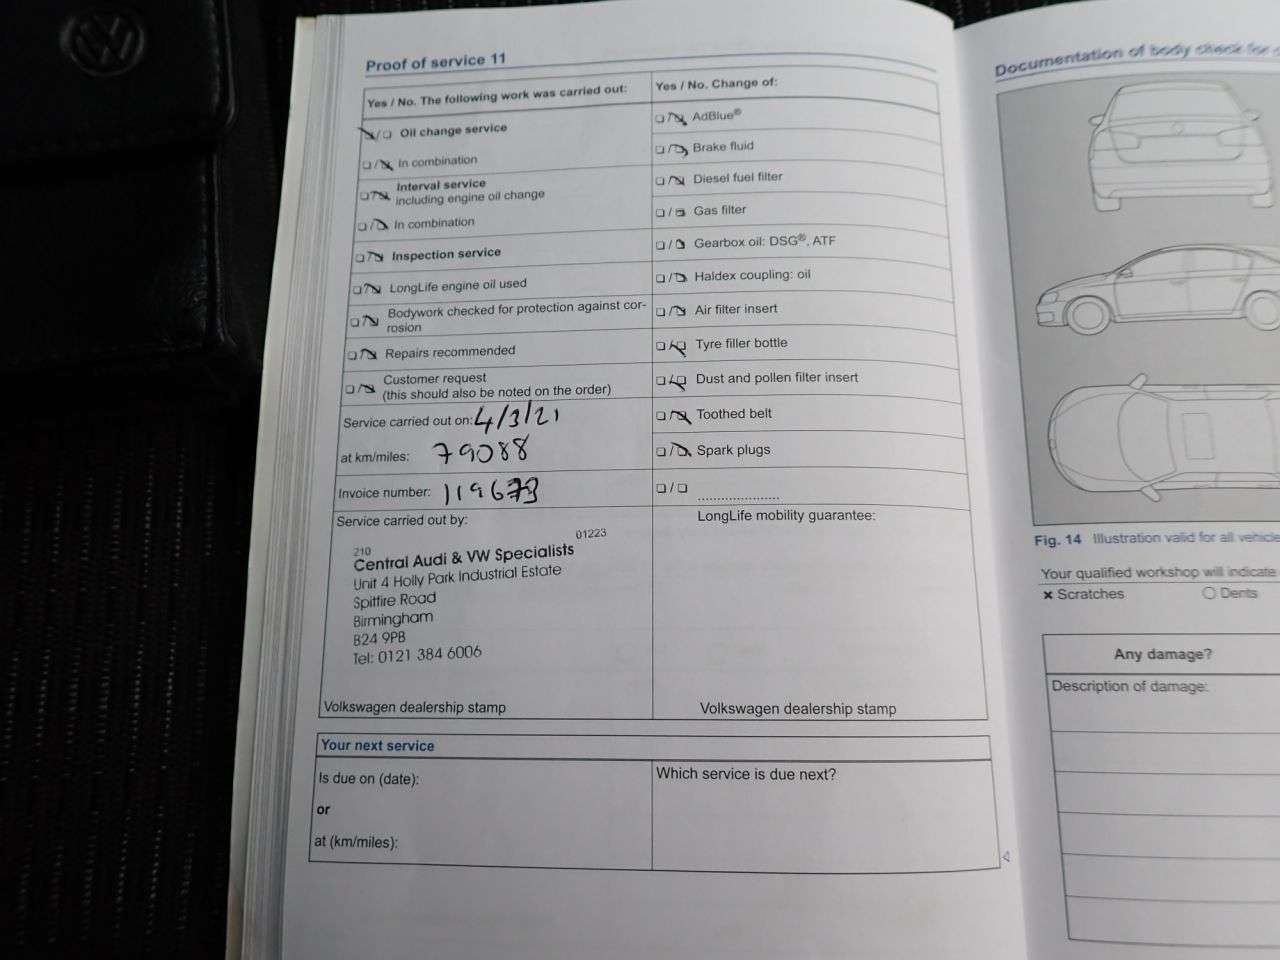 Proof of service 11
Yes / No. The following work was carried out:
Oil change service
In combination
Interval service
including engine oil change
In combination
Inspection service
LongLife engine oil used
Bodywork checked for protection against cor-
rosion
Repairs recommended
Customer request
(this should also be noted on the order)
Service carried out on: 4/3/21
at km/miles: 79088
Invoice number: 119673
Service carried out by:
01223
210
Central Audi & VW Specialists
Unit 4 Holly Park Industrial Estate
Spitfire Road
Birmingham
B24 9PB
Tel: 0121 384 6006
Volkswagen dealership stamp
Yes / No. Change of:
AdBlue®
Brake fluid
Diesel fuel filter
Gas filter
Gearbox oil: DSG®, ATF
Haldex coupling: oil
Air filter insert
Tyre filler bottle
Dust and pollen filter insert
Toothed belt
Spark plugs
LongLife mobility guarantee:
Volkswagen dealership stamp
Your next service
Is due on (date):
or
at (km/miles):
Which service is due next?
Documentation of body check for
Fig. 14 Illustration valid for all vehicle
Your qualified workshop will indicate
× Scratches
Dents
Any damage?
Description of damage: